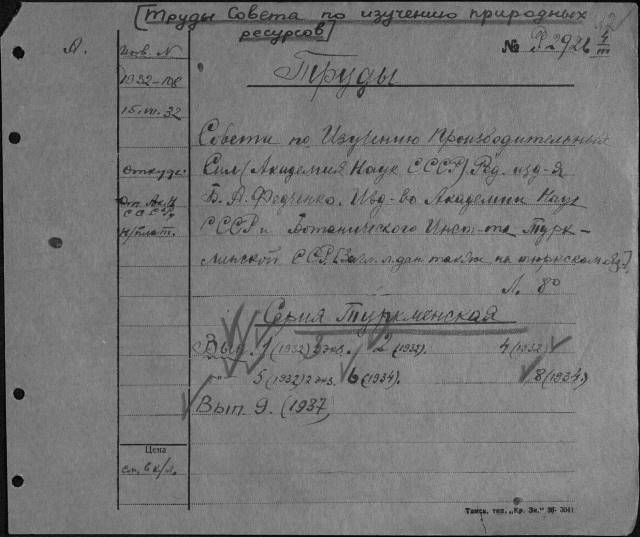 [Труды Совета по изучению природных
ресурсов]
№ 2926 4/III
Л.
Инв. N
1932-108
15.VII.32
Откуда:
От Ак. Н
СССР
н/плат.
Труды
Совета по Изучению Производительных
Сил (Академия Наук СССР) Ред. изд-я
Б. А. Федченко. Изд-во Академии Наук
СССР и Ботанического Инст-та Турк-
менской ССР. [Загл. л. дан также на тюркском яз.]
Л. 8°
Серия Туркменская
Вып. 1 (1932) 2 экз. 2 (1932). 4 (1932)
-"- 5 (1932) 2 экз. 6 (1934). 8 (1934)
Вып. 9. (1937)
Цена
см. в к/л.
Тамск. тип. „Кр. Зн." 36-3041